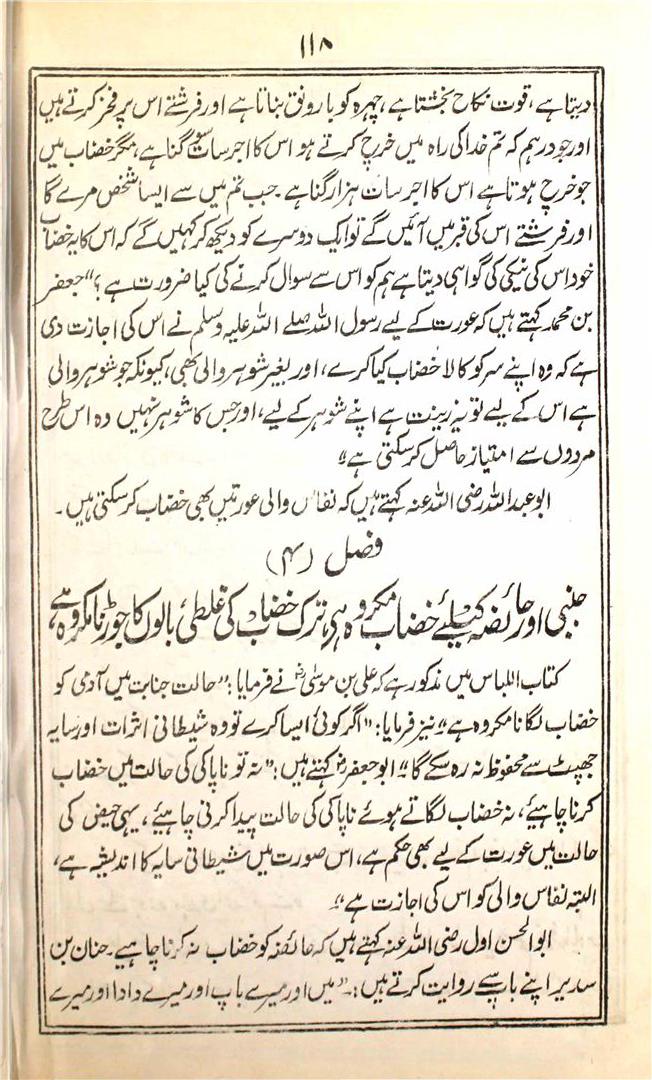 ۱۱۸
دیتا ہے، قوت نکاح بخشتا ہے، چہرہ کو بارونق بناتا ہے اور فرشتے اس پر فخر کرتے ہیں
اور جو درہم کہ تم خدا کی راہ میں خرچ کرتے ہو اس کا اجر سات سو گنا ہے، مگر خضاب میں
جو خرچ ہوتا ہے اس کا اجر سات ہزار گنا ہے۔ جب تم میں سے ایسا شخص مرے گا
اور فرشتے اس کی قبر میں آئیں گے تو ایک دوسرے کو دیکھ کر کہیں گے کہ اس کا یہ خضاب
خود اس کی نیکی کی گواہی دیتا ہے ہم کو اس سے سوال کرنے کی کیا ضرورت ہے؟" جعفر
بن محمد کہتے ہیں کہ عورت کے لیے رسول اللہ صلے اللہ علیہ وسلم نے اس کی اجازت دی
ہے کہ وہ اپنے سر کو کالا خضاب کیا کرے، اور بغیر شوہر والی بھی، کیونکہ جو شوہر والی
ہے اس کے لیے تو یہ زینت ہے اپنے شوہر کے لیے، اور جس کا شوہر نہیں وہ اس طرح
مردوں سے امتیاز حاصل کر سکتی ہے"
ابو عبد اللہ رضی اللہ عنہ کہتے ہیں کہ نفاس والی عورتیں بھی خضاب کر سکتی ہیں۔
فصل (۴)
جنبی اور حائضہ کیلئے خضاب مکروہ ہی، ترک خضاب کی غلطی، بالوں کا جوڑنا مکروہ ہے،
کتاب اللباس میں مذکور ہے کہ علی بن موسیٰ رض نے فرمایا: "حالت جنابت میں آدمی کو
خضاب لگانا مکروہ ہے" نیز فرمایا: "اگر کوئی ایسا کرے تو وہ شیطانی اثرات اور سایہ
جھپٹ سے محفوظ نہ رہ سکے گا" ابو جعفر رض کہتے ہیں: "نہ تو ناپاکی کی حالت میں خضاب
کرنا چاہیئے، نہ خضاب لگاتے ہوئے ناپاکی کی حالت پیدا کرنی چاہیئے، یہی حیض کی
حالت میں عورت کے لیے بھی حکم ہے، اس صورت میں شیطانی سایہ کا اندیشہ ہے،
البتہ نفاس والی کو اس کی اجازت ہے"
ابو الحسن اول رضی اللہ عنہ کہتے ہیں کہ حائضہ کو خضاب نہ کرنا چاہیے۔ حنان بن
سدیر اپنے باپ سے روایت کرتے ہیں: "میں اور میرے باپ اور میرے دادا اور میرے